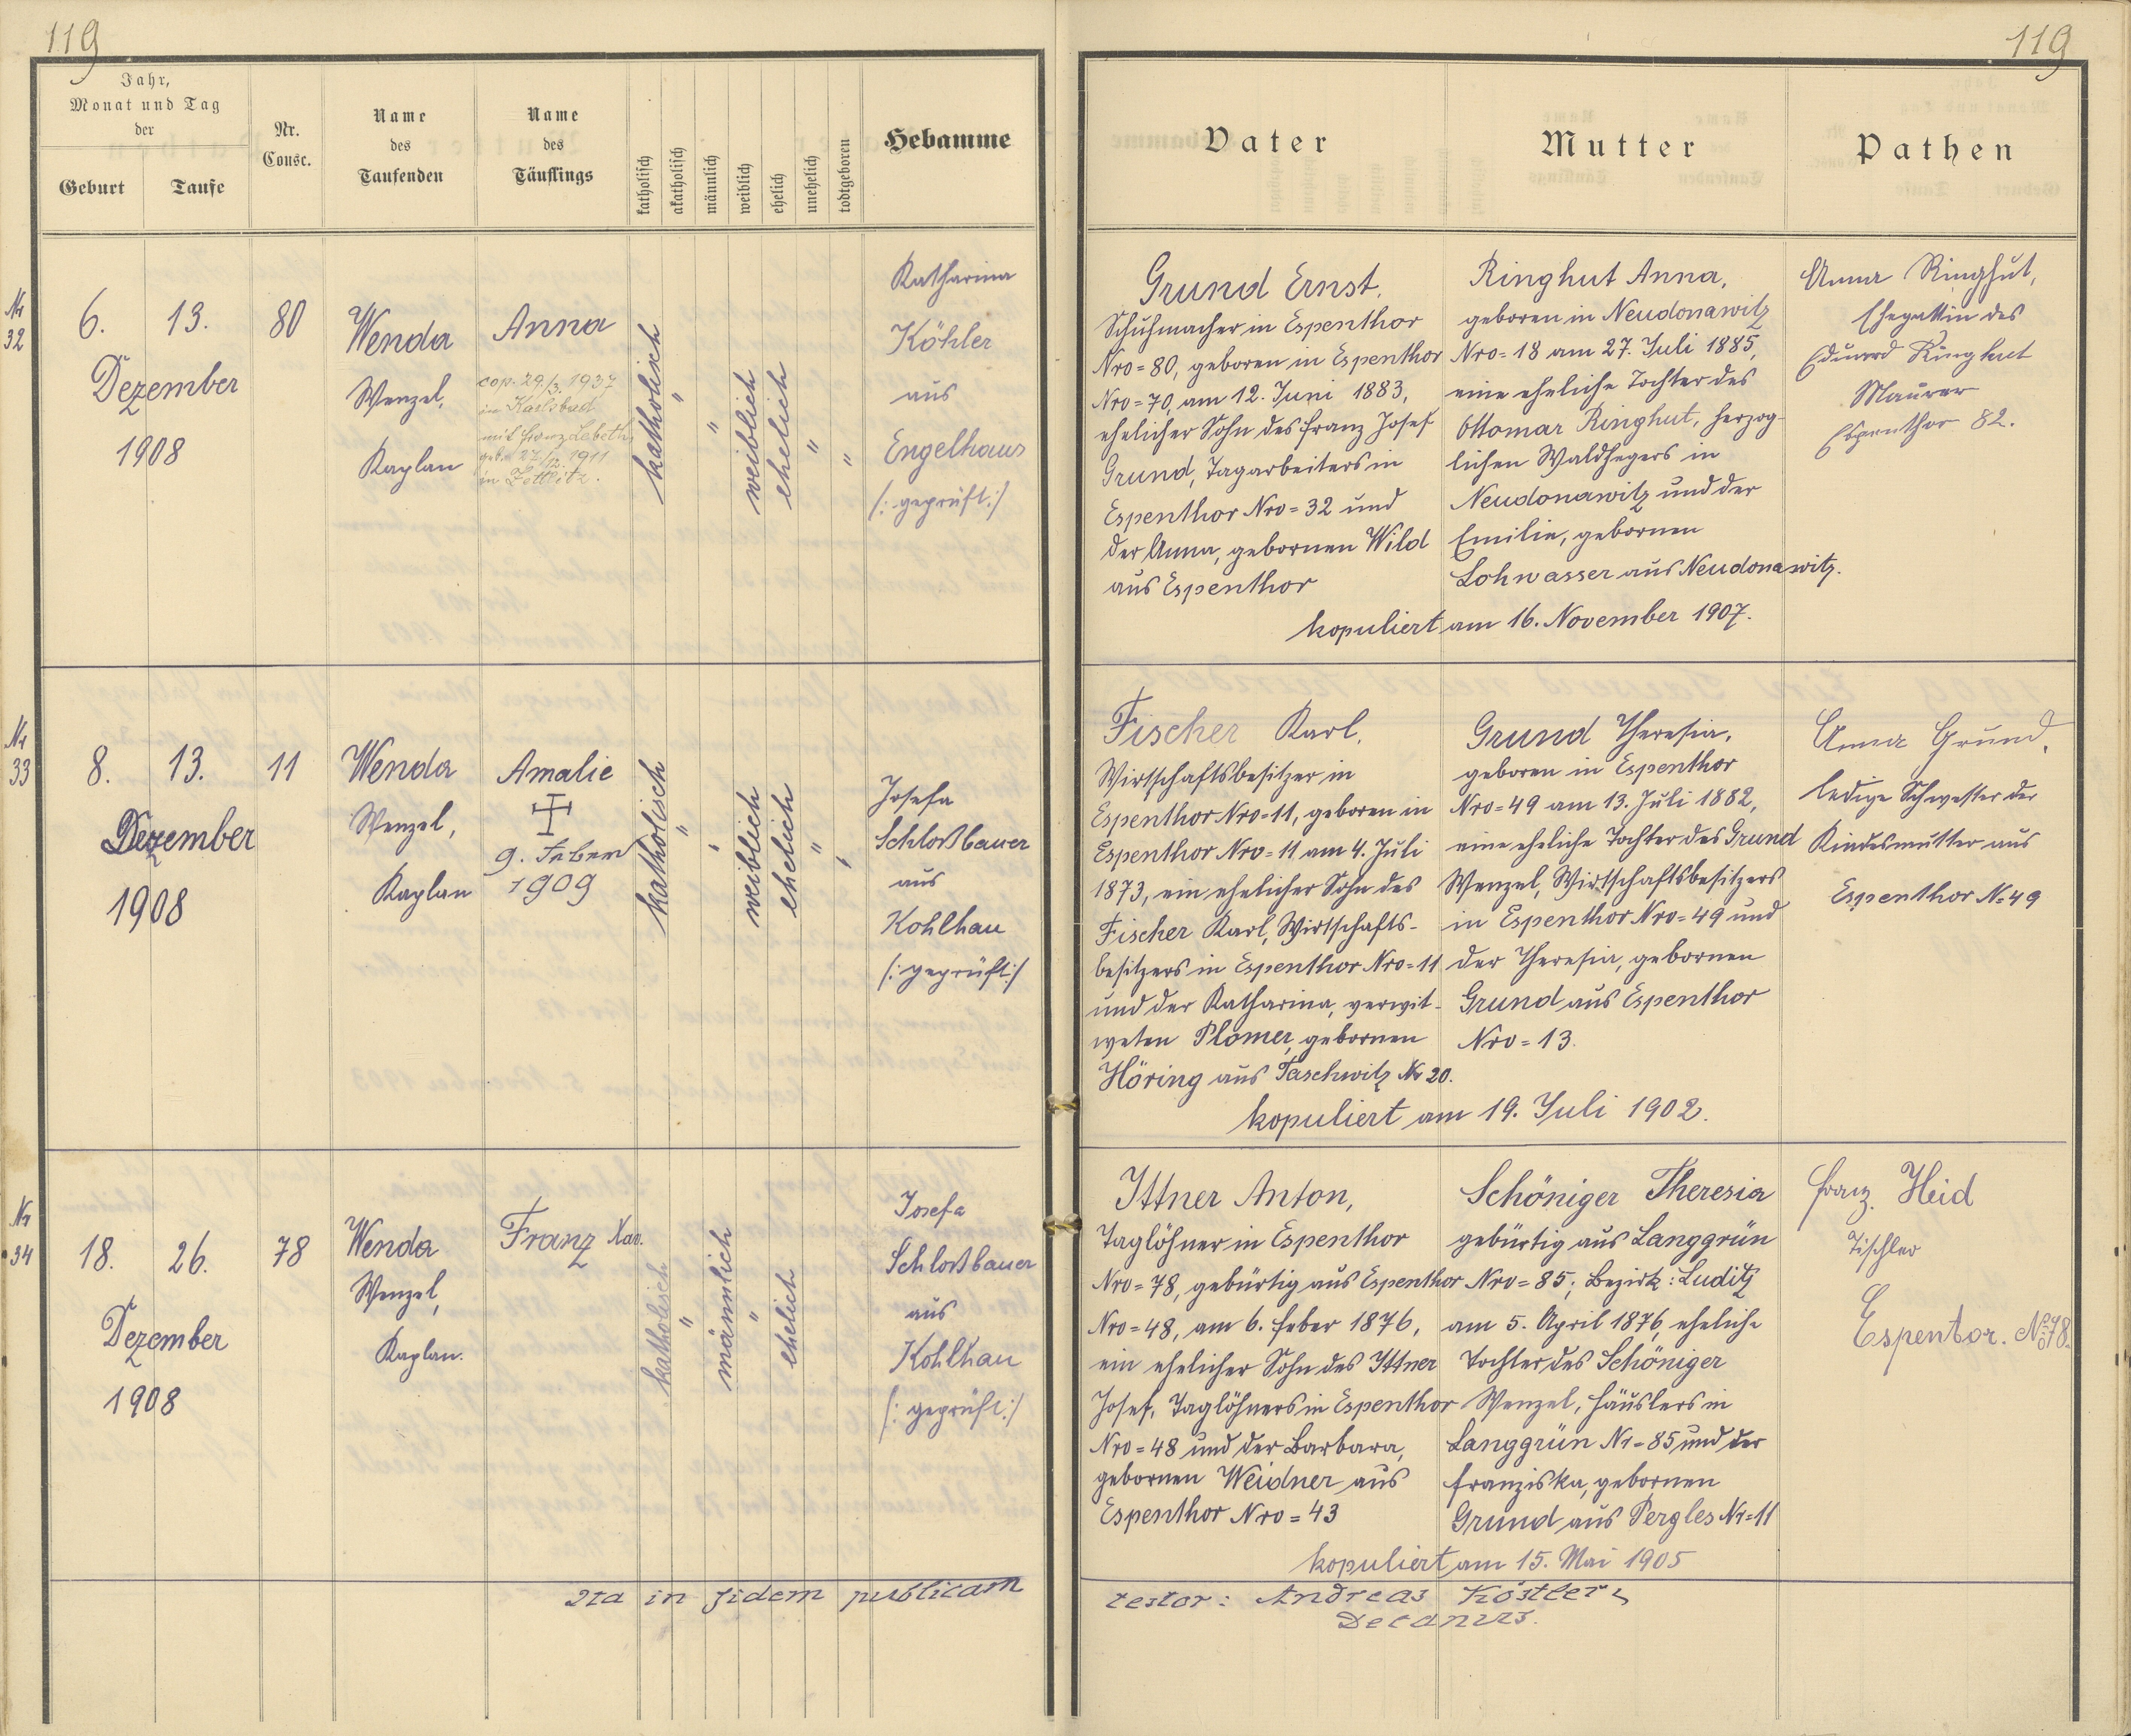 119
119
Jahr,
Monat und Tag
der
Geburt
Taufe
Nr.
Consc.
Name
des
Taufenden
Name
des
Täuflings
katholisch
akatholisch
männlich
weiblich
ehelich
unehelich
todtgeboren
Hebamme
Vater
Mutter
Pathen
Nr
32
6. 13.
Dezember
1908
80
Wenda
Wenzel,
Kaplan
Anna
cop. 29./3. 1937
in Karlsbad
mit Franz Lebeth
geb. 27./12. 1911
in
katholisch
"
"
weiblich
ehelich
"
"
Katharina
Köhler
aus
Engelhaus
/: geprüft :/
Grund Ernst,
Schuhmacher in Espenthor
Nro = 80, geboren in Espenthor
Nro = 70, am 12. Juni 1883,
ehelicher Sohn des Franz Josef
Grund, Tagarbeiters in
Espenthor Nro = 32 und
der Anna, gebornen Wild
aus Espenthor
Ringhut Anna,
geboren in Neudonawitz
Nro = 18 am 27. Juli 1885,
eine eheliche Tochter des
Ottomar Ringhut, herzog-
lichen Waldhegers in
Neudonawitz und der
Emilie, gebornen
Lohwasser aus Neudonawitz.
kopuliert am 16. November 1907.
Anna Ringhut,
Ehegattin des
Eduard Ringhut
Maurer
Espenthor 82.
Nr
33
8. 13.
Dezember
1908
11
Wenda
Wenzel,
Kaplan
Amalie
9. Feber
1909
katholisch
"
"
weiblich
ehelich
"
"
Josefa
Schloßbauer
aus
Kohlhau
/: geprüft :/
Fischer Karl,
Wirtschaftsbesitzer in
Espenthor Nro = 11, geboren in
Espenthor Nro = 11 am 4. Juli
1873, ein ehelicher Sohn des
Fischer Karl, Wirtschafts-
besitzers in Espenthor Nro = 11
und der Katharina, verwit-
weten Plomer, gebornen
Höring aus Taschwitz Nr 20.
Grund Theresia,
geboren in Espenthor
Nro = 49 am 13. Juli 1882,
eine eheliche Tochter des Grund
Wenzel, Wirtschaftsbesitzers
in Espenthor Nro = 49 und
der Theresia, gebornen
Grund aus Espenthor
Nro = 13.
kopuliert am 19. Juli 1902.
Anna Grund,
ledige Schwester der
Kindesmutter aus
Espenthor N= 49
Nr
34
18. 26.
Dezember
1908
78
Wenda
Wenzel,
Kaplan.
Franz Xav.
katholisch
"
männlich
"
ehelich
Josefa
Schloßbauer
aus
Kohlhau
/: geprüft :/
Ittner Anton,
Taglöhner in Espenthor
Nro = 78, gebürtig aus Espenthor
Nro = 48, am 6. Feber 1876,
ein ehelicher Sohn des Ittner
Josef, Taglöhners in Espenthor
Nro = 48 und der Barbara,
gebornen Weidner aus
Espenthor Nro = 43
Schöniger Theresia
gebürtig aus Langgrün
Nro = 85; Bezirk: Luditz
am 5. April 1876, eheliche
Tochter des Schöniger
Wenzel, Häuslers in
Langgrün Nr = 85 und der
Franziska, gebornen
Grund aus Pergles Nr = 11
kopuliert am 15. Mai 1905
Franz Heid
Tischler
Espentor. No 78.
Ita in fidem publicam
testor: Andreas Köstler,
Decanus.